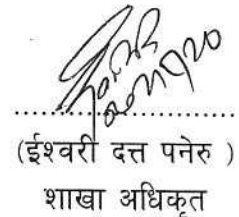 (ईश्वरी दत्त पनेरु )
शाखा अधिकृत